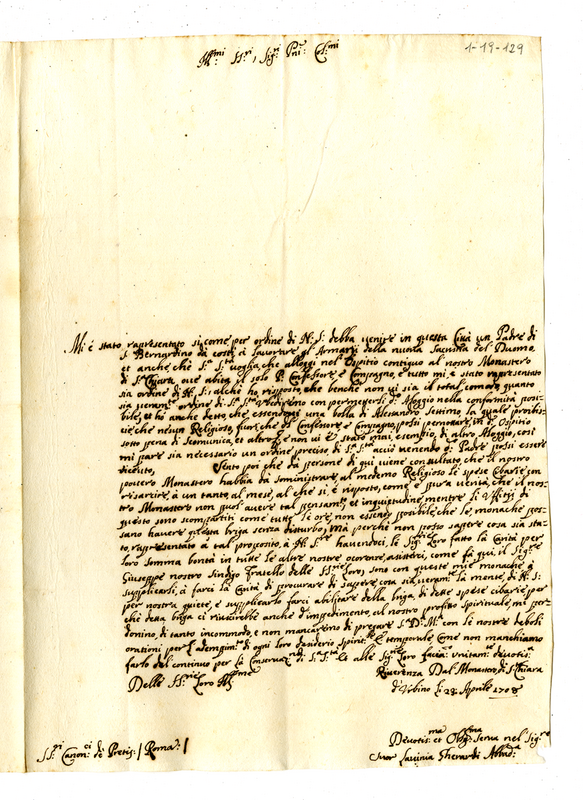 1-19-129
Ill:mi SS:ri, Sig:ri Pni: Col:mi
Mi è stato rapresentato si, come per ordine di N: S: debba venire in questa Città un Padre di
S. Bernardino da costì, à lavorare gl'Armarij della nuova Sacristia del Duomo
et anche chè S: S:tà voglia, che alloggi nel'Ospitio contiguo al nostro Monastero
di S: Chiara, ove abita il solo P: Confessore, e Compagno, e tutto mi è stato rapresentato
sia ordine di N: S: al chè hò risposto, chè benchè non vi sia il total comodo, quanto
sia veram:te ordine di S: S:tà
bile, et hò anche detto, che essendovi una bolla di Alesandro Settimo, la quale proibi-
sce, chè nesun Religioso, fuor chè il Confesore, e Compagno, possi pernotare, in d: Ospitio
sotto pena di Scomunica, et altro, e non vi è stato mai, esempio, di altro Aloggio, così
mi pare sia necessario un ordine preciso di S: S:tà acciò venendo d: Padre possi essere
ricevuto. Sento poi chè da persone di qui viene consultato che il nostro
povero Monastero habbia da soministrare, al medemo Religioso le spese cibarie, con
risarcire, à un tanto, al mese, al che si, è risposto, come è pura verità, che il nos-
tro Monastero non puol'avere tal pensam:to, et inquietudine, mentre li Offitij di
questo sono scompartiti come tutte le ore, non essendo posibile, chè le, monache pos-
sano havere questa briga senza disturbo, mà perchè non posso sapere cosa sia sta-
to, rapresentato à tal proposito, à N: S:re havendoci, le Sig:rie Loro fatto la Carità per
loro somma bontà in tutte le altre nostre ocorenze, asistersi, come fà qui il Sig:re
Giuseppe nostro Sindico fratello delle SS:rie loro, sono con queste mie monache à
supplicarli, à farci la Carità di procurare di sapere, cosa sia veram:te la mente, di N: S:
per nostra quiete, e supplicarlo farci abilitare della briga, di dette spese cibarie per
chè detta briga ci riuscirebbe anche d'impedimento, al nostro profitto spirituale, mi per-
donino, di tanto incommodo, e non mancaremo di pregare S: D: M:tà con le nostre deboli
orationi per l'adempim:to di ogni loro desiderio spirit:le e temporale, come non manchiamo
farlo del continuo per la Conservaz:ne di S: S:tà, et alle Sig:rie loro faccio unitam:te devotis:a
Riverenza Dal Monastero di S: Chiara
Delle SS:rie Loro Ill:me
d'Urbino li: 28: Aprile 1708
Devotis:ma et Oblig:ma Serva nel Sig:re
SS:ri Canon:ci de Pretis: / Roma: /
Suor Lavinia Gherardi Abbad: